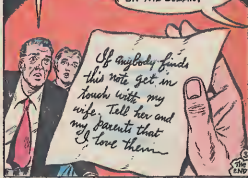 If anybody finds
this note get in
touch with my
wife. Tell her and
my parents that
I love them
THE
END